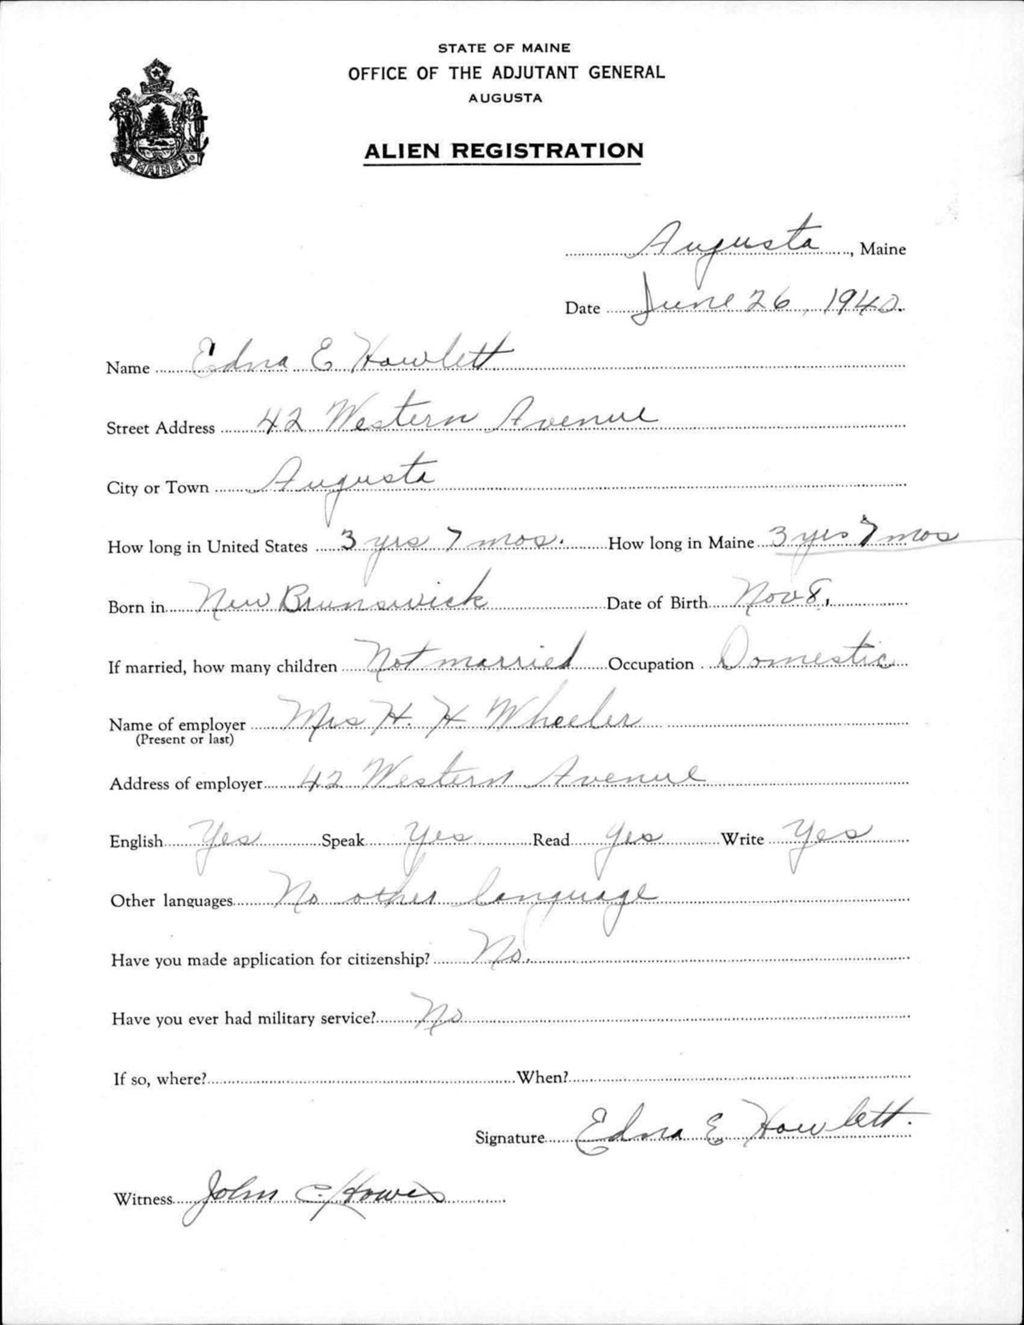 STATE OF MAINE
OFFICE OF THE ADJUTANT GENERAL
AUGUSTA
ALIEN REGISTRATION
MAINE
Augusta, Maine
Date June 26, 1940.
Name Edna E Howlett
Street Address 42 Western Avenue
City or Town Augusta
How long in United States 3 yrs 7 mos. How long in Maine 3 yrs 7 mos
Born in New Brunswick Date of Birth Nov 8,
If married, how many children Not married Occupation Domestic
Name of employer Mrs H. H Wheeler
(Present or last)
Address of employer 42 Western Avenue
English Yes Speak Yes Read Yes Write Yes
Other languages No other language
Have you made application for citizenship? No.
Have you ever had military service? No
If so, where? When?
Signature Edna E Howlett.
Witness John C. Howes